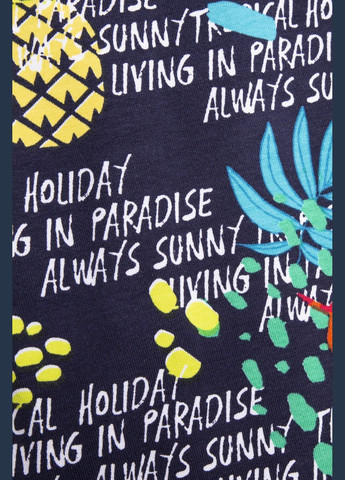 PARADISE
WAYS SUNNY TROPICAL HO
LIVING IN PARADISE
ALWAYS SU
HOLIDAY
G IN PARADISE
ALWAYS SUNNY TR
LIVING IN
ALWAY
CAL HOLIDAY
IVING IN PARADISE
ALWAYS SUNNY TR
LIVING IN